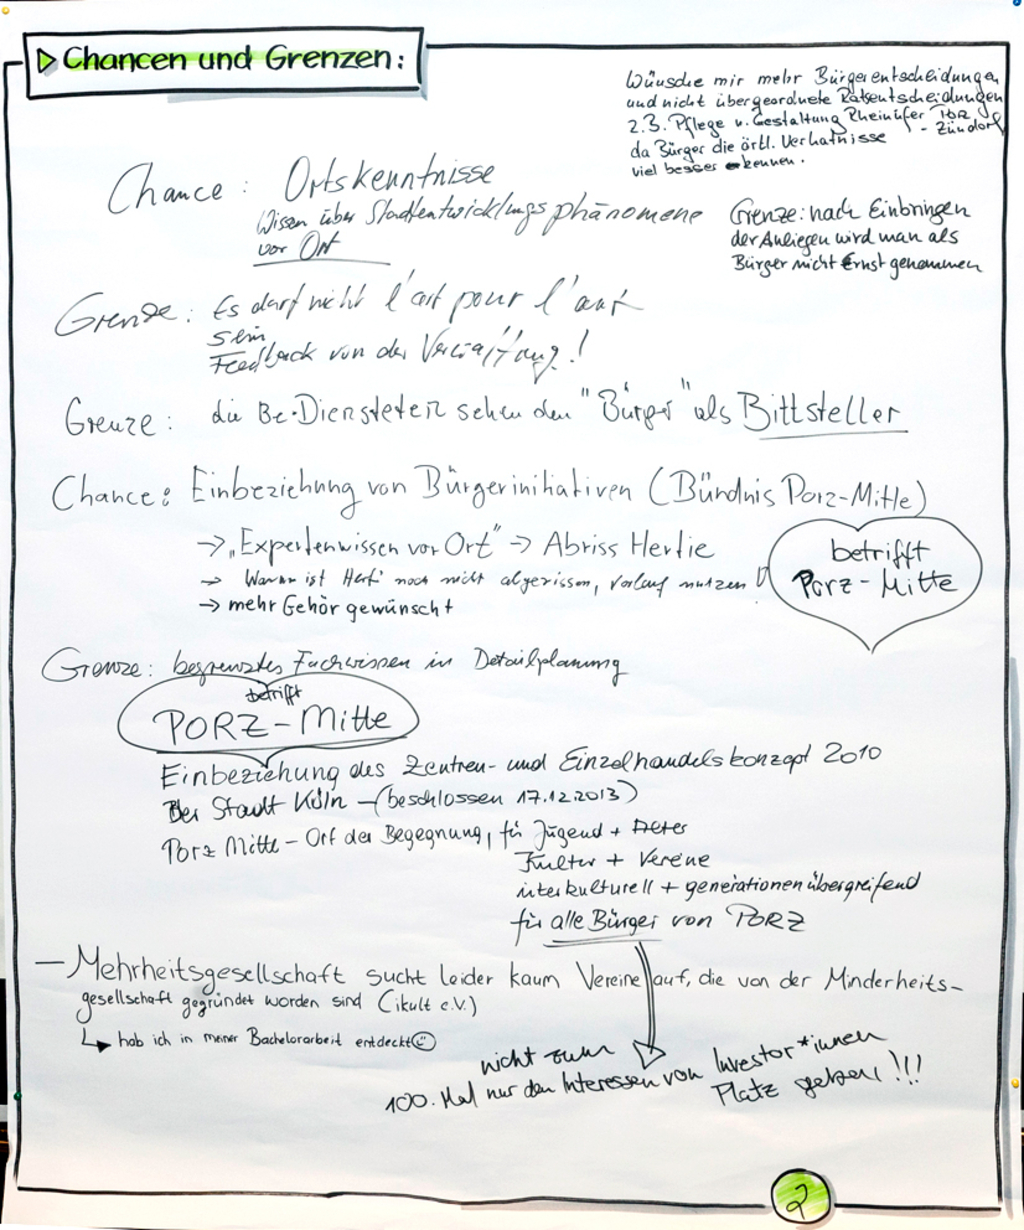 Chancen und Grenzen:
Wünsche mir mehr Bürgerentscheidungen
und nicht übergeordnete Ratsentscheidungen
z.B. Pflege u. Gestaltung Rheinufer Porz
- Zündorf
da Bürger die örtl. Verhältnisse
viel besser kennen.
Chance: Ortskenntnisse
Wissen über Stadtentwicklungsphänomene
vor Ort
Grenze: nach Einbringen
der Anliegen wird man als
Bürger nicht Ernst genommen
Grenze: Es darf nicht l'art pour l'art
sein
Feedback von der Verwaltung!
Grenze: die Be-Diensteten sehen den "Bürger" als Bittsteller
Chance: Einbeziehung von Bürgerinitiativen (Bündnis Porz-Mitte)
→ „Expertenwissen vor Ort" → Abriss Hertie
→ Warum ist noch nicht abgerissen, nutzen
→ mehr Gehör gewünscht
betrifft
Porz-Mitte
Grenze: begrenztes Fachwissen in Detailplanung
betrifft
PORZ-Mitte
Einbeziehung des Zentren- und Einzelhandelskonzept 2010
Der Stadt Köln - (beschlossen 17.12.2013)
Porz Mitte - Ort der Begegnung, für Jugend +
Kultur + Vereine
interkulturell + generationenübergreifend
für alle Bürger von PORZ
— Mehrheitsgesellschaft sucht leider kaum Vereine auf, die von der Minderheits-
gesellschaft gegründet worden sind (ikult e.V.)
↳ hab ich in meiner Bachelorarbeit entdeckt ☺
nicht zum
100. Mal nur den Interessen von Investor*innen
Platz geben!!!
2